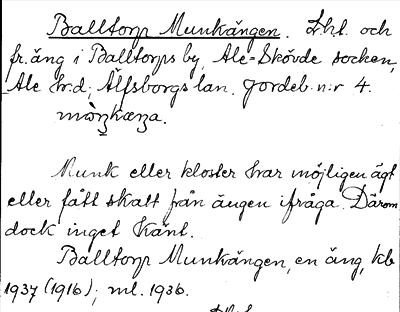 Balltorp Munkängen. Skl. och
fr. äng i Balltorps by, Ale-Skövde socken,
Ale hd; Älfsborgs lan. Jordeb. n:r 4.
Munk eller kloster har möjligen ägt
eller fått skatt från ängen ifråga. Därom
dock inget känt.
Balltorp Munkängen, en äng, kb
1937 (1916); ml. 1936.